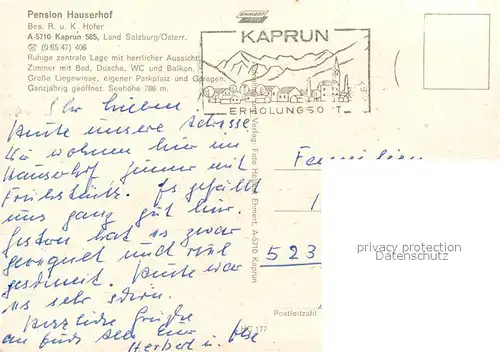 Pension Hauserhof
Bes. R. u. K. Hofer
A-5710 Kaprun 585, Land Salzburg/Österr.
☎ (0 65 47) 406
Ruhige zentrale Lage mit herrlicher Aussicht.
Zimmer mit Bad, Dusche, WC und Balkon.
Große Liegewiese, eigener Parkplatz und Garagen.
Ganzjährig geöffnet. Seehöhe 786 m.
KAPRUN
ERHOLUNGSORT
Ihr Lieben
Heute unsere Adresse
Wir wohnen hier im
Hauserhof Zimmer mit
Frühstück. Es gefällt
uns ganz gut hier.
Gestern hat es zwar
geregnet und viel
gestürmt. Heute war
es sehr schön.
Herzliche Grüße
an Euch alle
Herbert u. Ilse
Verlag: Foto Helmut Ehmert, A-5710 Kaprun
HO 177
Familien
1
523
Postleitzahl
privacy protection
Datenschutz